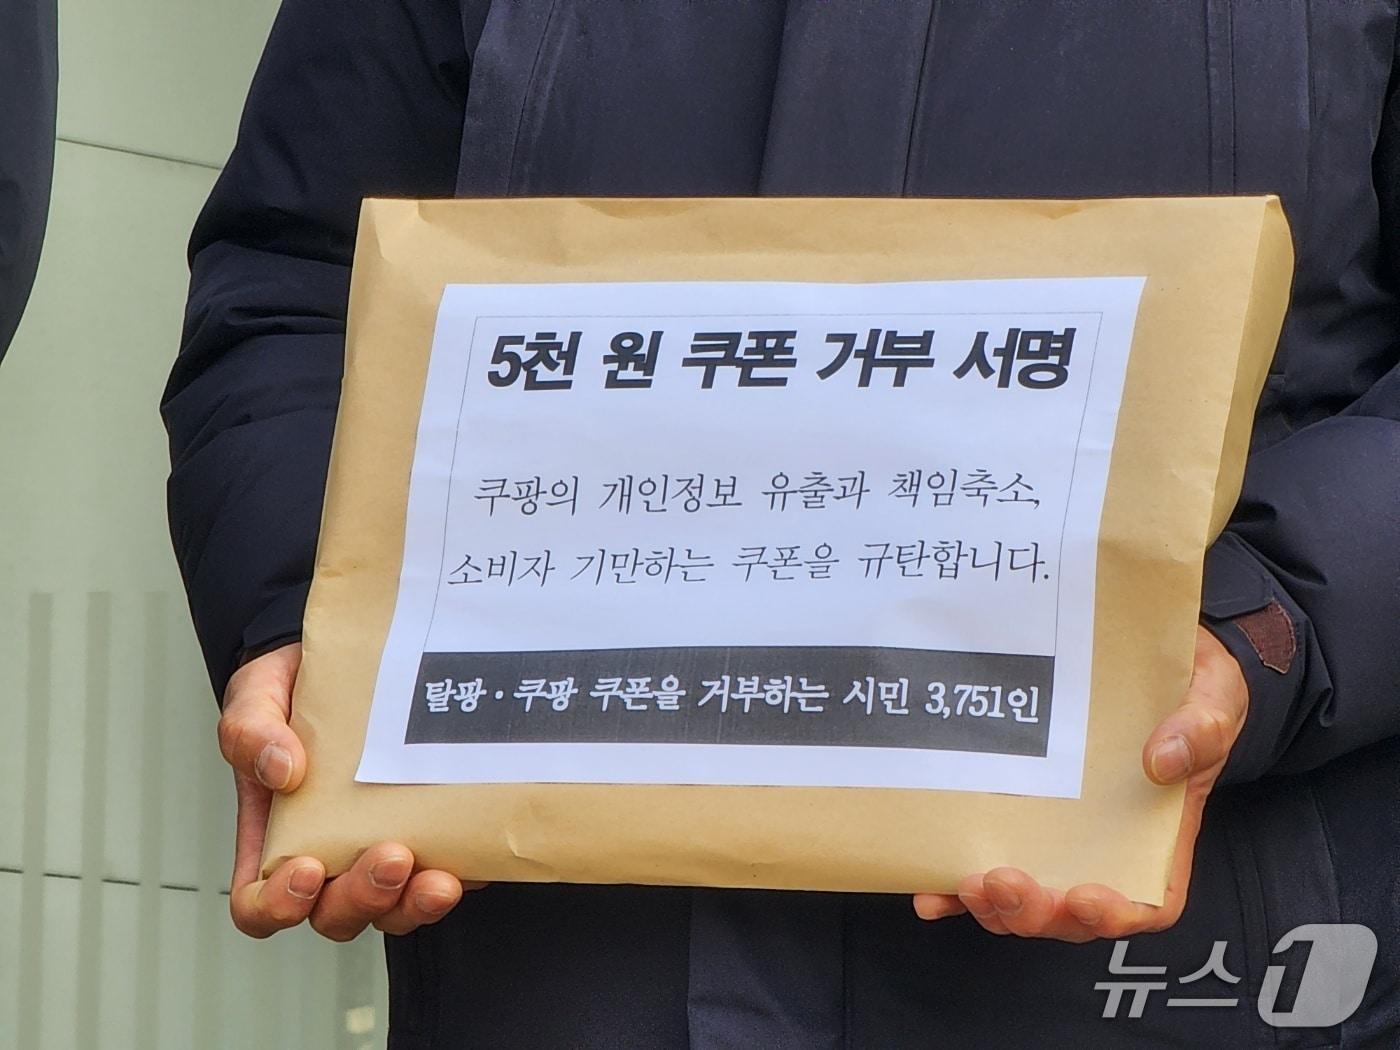 5천 원 쿠폰 거부 서명
쿠팡의 개인정보 유출과 책임축소,
소비자 기만하는 쿠폰을 규탄합니다.
탈팡·쿠팡 쿠폰을 거부하는 시민 3,751인
뉴스1